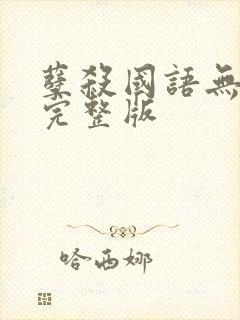 孽殺國語無
完整版
哈西娜